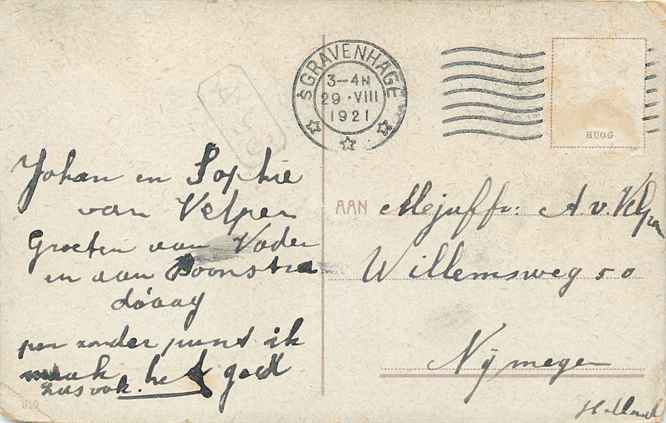 'SGRAVENHAGE
3-4N
29·VIII
1921
HUGG
Johan en Sophie
van Velpen
Groeten aan Vader
en aan Boonstra
dáaag
pen zonder punt ik
maak het goed
zus ook.
AAN Mejuffr: A. v. Velpen
Willemsweg 50
Nijmegen
Holland